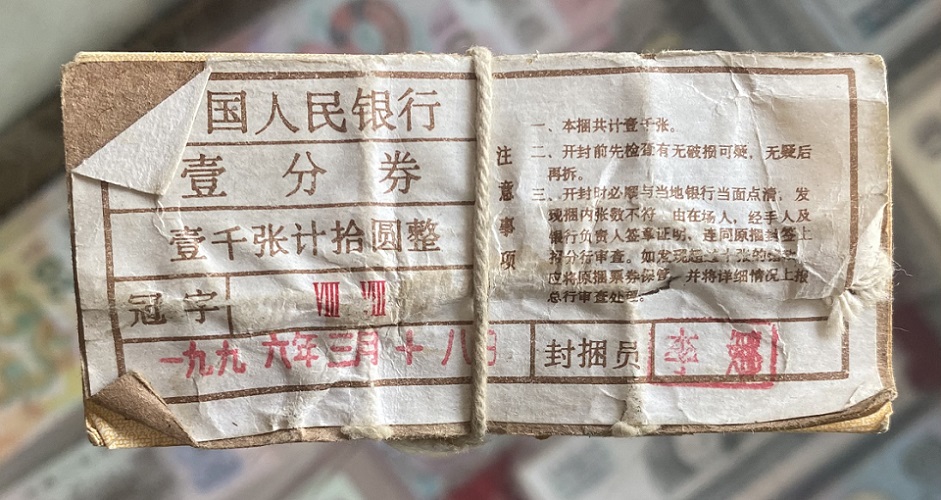 国人民银行
壹分券
壹千张计拾圆整
冠字 Ⅷ Ⅶ
一九九六年三月十八日
注意事项
一、本捆共计壹千张。
二、开封前先检查有无破损可疑，无疑后
再拆。
三、开封时必须与当地银行当面点清，发
现捆内张数不符，由在场人，经手人及
银行负责人签章证明，连同原捆封签上
报分行审查。如发现
应将原捆票券保管，并将详细情况上报
总行审查处理。
封捆员 李